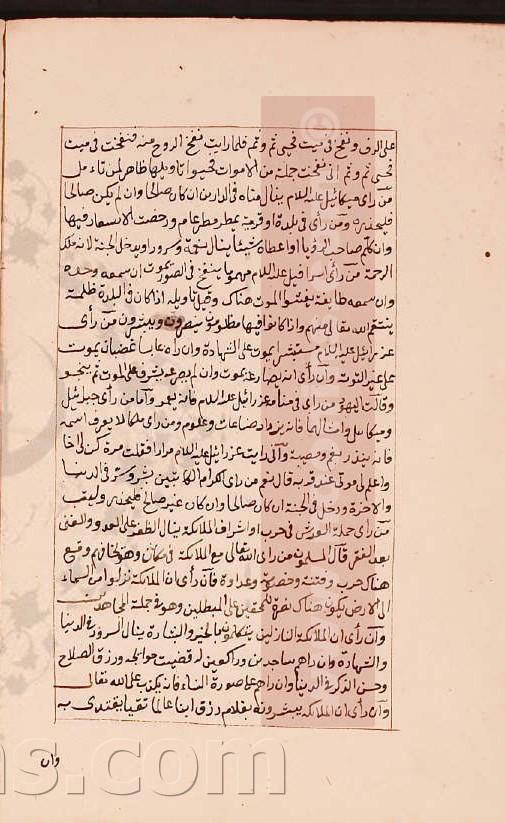 على الرف ونفخ في ميت فحيى ثم وثم فلما رايت نفخ الروح منه فنفخت في ميت
فحيى ثم وثم الى نفخت جملة من الاموات فحيوا تاويلها ظاهر لمن تامل
من رأى ميكائيل عليه السلام ينال مناه في الدارين ان كان صالحا وان لم يكن صالحا
فليحذر ومن رأى في بلدة او قرية يمطر مطر عام ورخصت الاسعار فيها
وان كلم صاحب الرؤيا او اعطاه شيئا ينال نعمة وسرورا ويدخل الجنة لانه ملك
الرحمة من رأى اسرافيل عليه السلام مهموما ينفخ في الصور يموت ان سمعه وحده
وان سمعه طايفة يفشوا الموت هناك وقيل تاويله اذا كان في البلدة ظلمة
ينتقم الله تعالى منهم واذا كانوا فيها مظلومون ينصرون ويبشرون من رأى
عزرائيل عليه السلام مستبشرا يموت على الشهادة وان راه عابسا غضبان يموت
على غير التوبة وان رأى انه يصارعه يموت وان لم يصرعه يشرف على الموت ثم ينجو
وقالت اليهود من رأى في منامه عزرائيل عليه السلام فانه ينجو وأما من رأى جبرائيل
وميكائيل وامثالهما فانه يزداد صناعات وعلوم ومن رأى ملكا لا يعرف اسمه
فانه ينذر بغم ومصيبة وانى رايت عزرائيل عليه السلام مرارا فقلت مرة كن لى اخا
واعلم لى موتى عند قربه قال نعم من رأى الكرام الكاتبين يبشر ويسر في الدنيا
والاخرة ودخل في الجنة ان كان صالحا وان كان غير صالح فليحذر وليتب
من رأى حملة العرش في حرب او اشراف الملائكة ينال الظفر على العدو والغنى
بعد الفقر قال المسلمون من رأى الله تعالى مع الملائكة في مكان وهو يخافهم وقع
هناك حرب وفتنة وخصومة وعداوة فان رأى ان الملائكة نزلوا من السماء
الى الارض يكون هناك نصرة للمحقين على المبطلين وهو في جملة المجاهدين
وان رأى ان الملائكة النازلين يتكلمون بالخير والبشارة ينال السرور في الدنيا
والشهادة وان راهم ساجدين وراكعين له قضيت حوائجه ورزق الصلاح
وحسن الذكر في الدنيا وان راهم على صورة النساء فانه يكذب على الله تعالى
وان رأى ان الملائكة يبشرونه بغلام رزق ابنا عالما تقيا يقتدى به
وان
ns.com